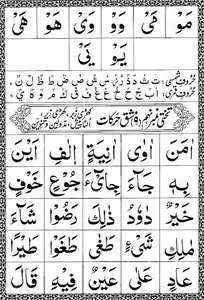 مَوْ مَیْ وَوْ وَیْ هَوْ هَیْ
یَوْ یَیْ
حروف شمسی: ت ث د ذ ر ز س ش ص ض ط ظ ل ن
حروف قمری: ا ب ج ح خ ع غ ف ق ك م و ه ی
اٰمَنَ اٰوٰی اٰنِیَةٍ اِلٰفِ اَیْنَ
بِهٖ جَآءَ جِایْٓءَ جُوْعٍ خَوْفٍ
خَیْرٌ دَاوٗدُ ذٰلِكَ رَضُوْا شَآءَ
مٰلِكِ شَیْءٍ طَغٰی طَغَوْا طَیْرًا
عَادٍ عَلٰی عَیْنٌ فِیْهِ قَالَ